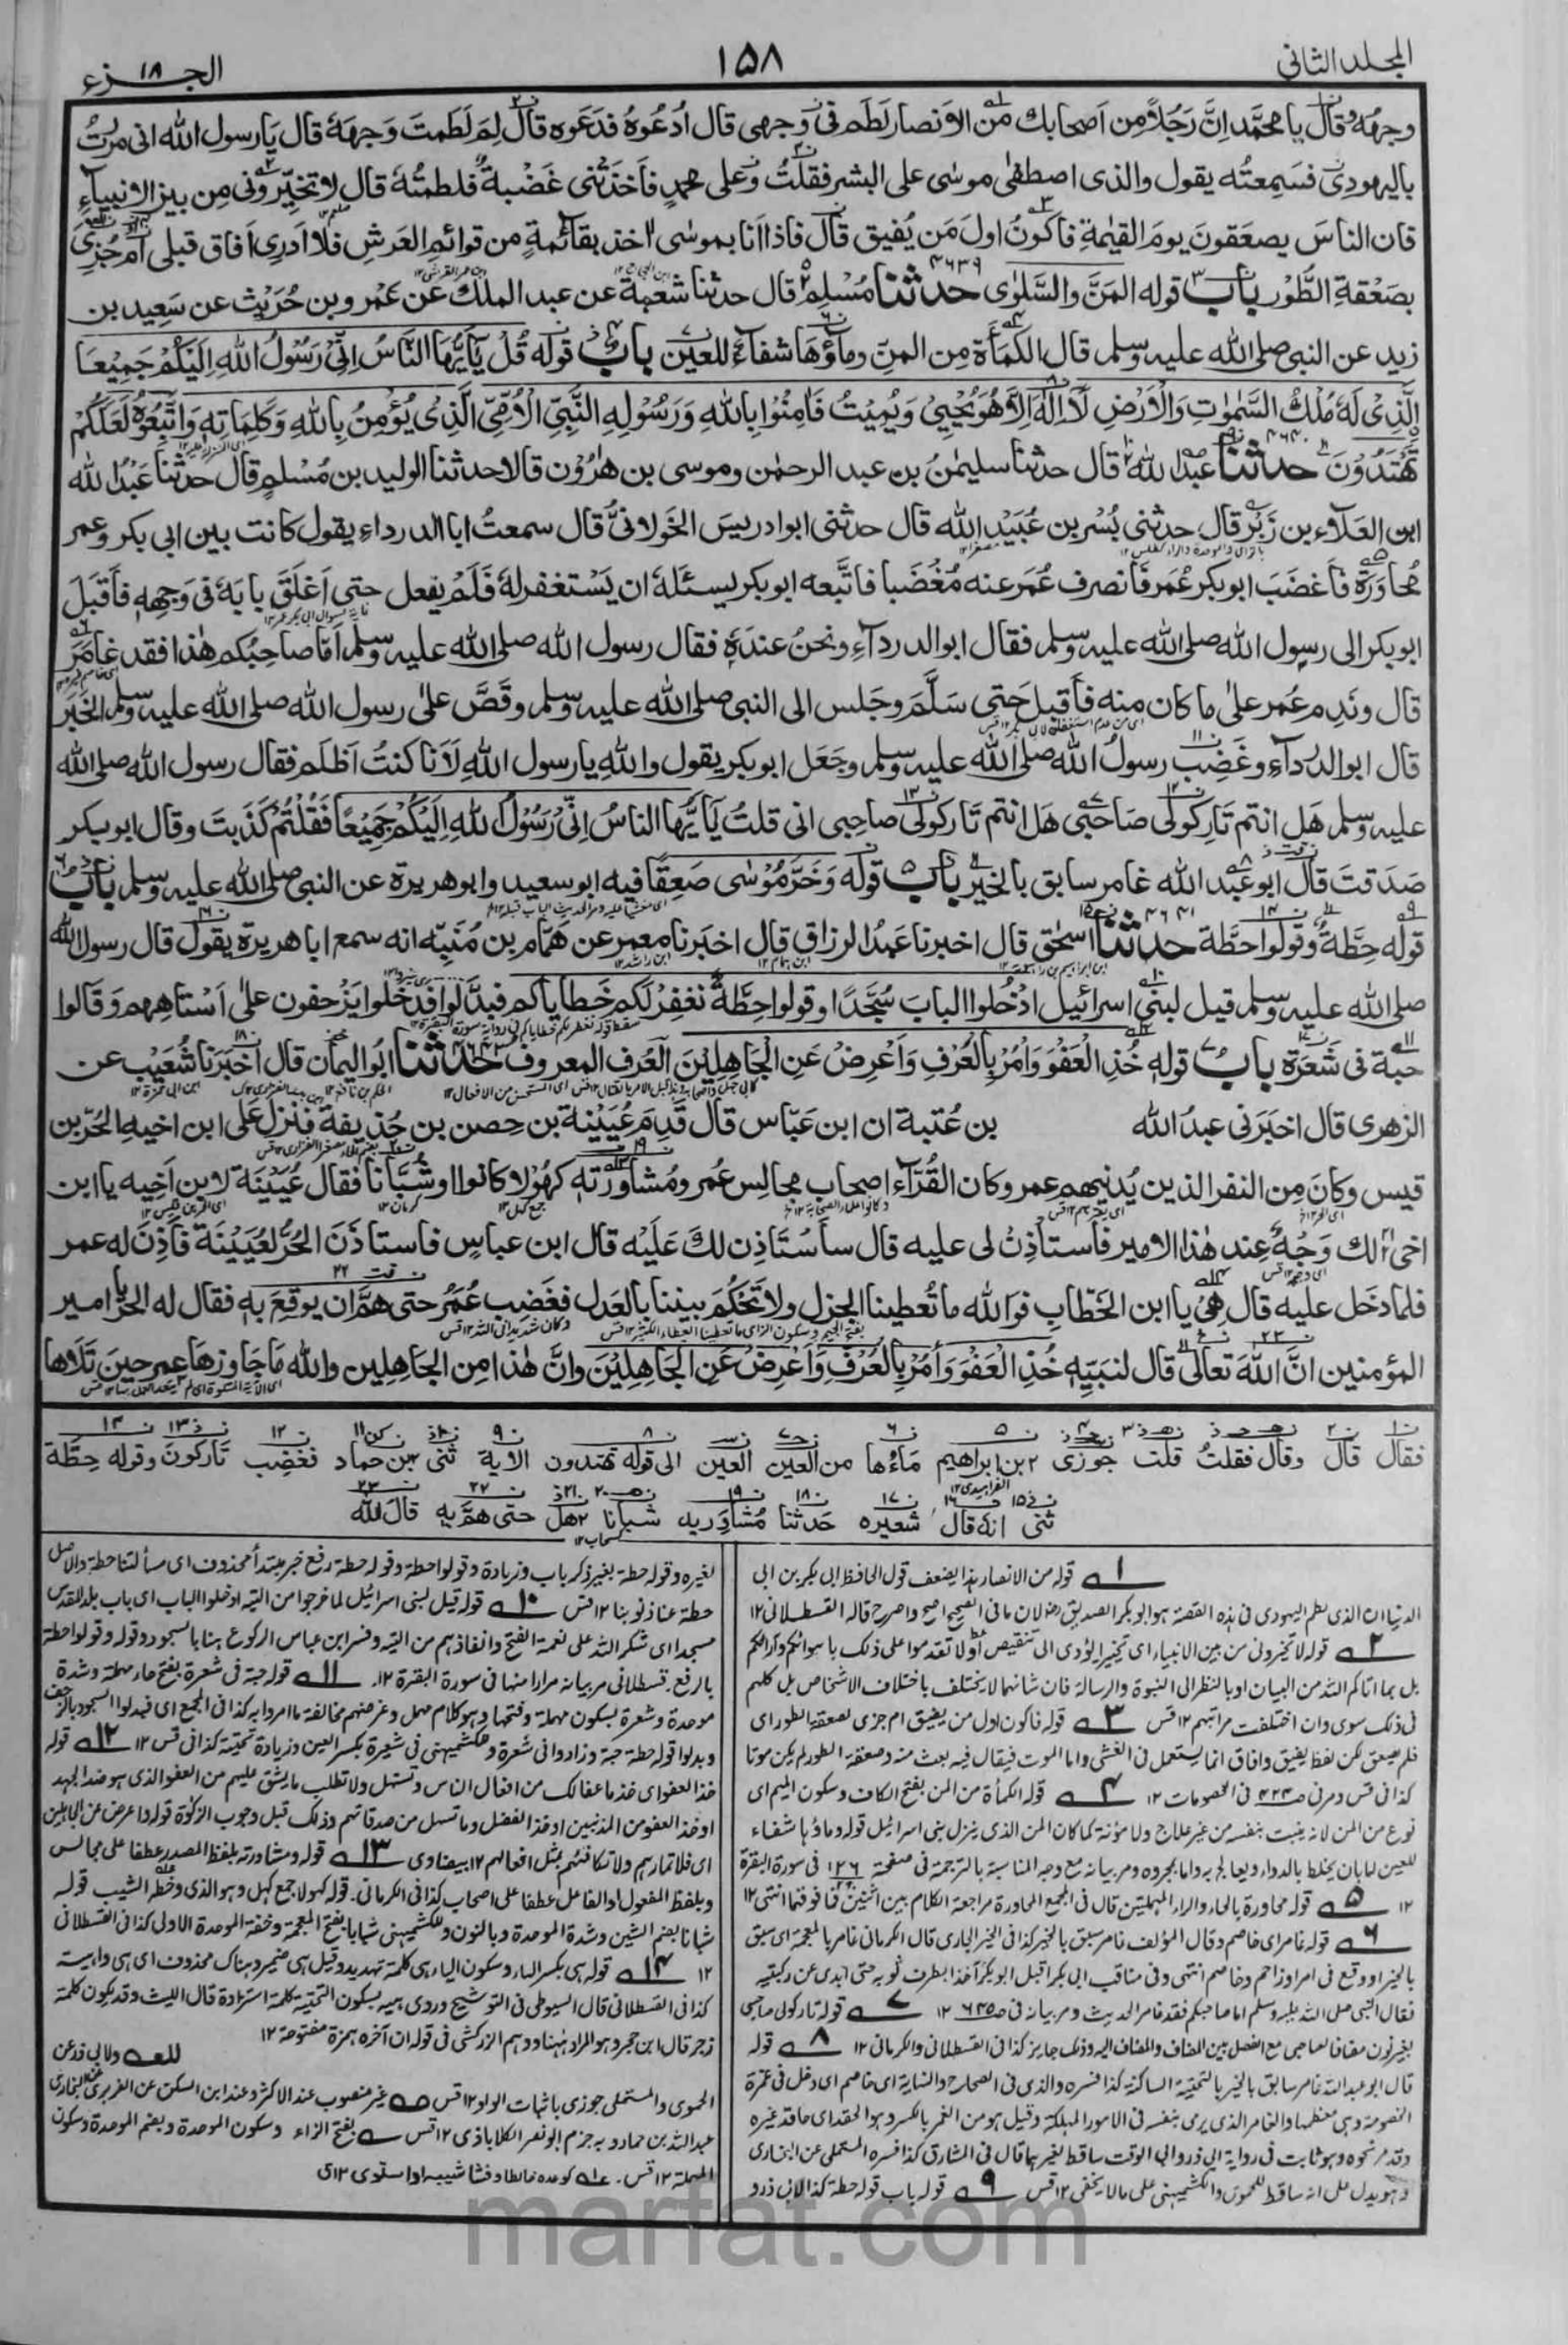 المجلد الثاني
۱۵۸
الجزء ۱۸
وجهه وقال يا محمد ان رجلا من اصحابك من الانصار لطم في وجهي قال ادعوه فدعوه قال لم لطمت وجهه قال يا رسول الله اني مررت
باليهودي فسمعته يقول والذي اصطفى موسى على البشر فقلت وعلى محمد فاخذتني غضبة فلطمته قال لا تخيروني من بين الانبياء
فان الناس يصعقون يوم القيمة فاكون اول من يفيق قال فاذا انا بموسى اخذ بقائمة من قوائم العرش فلا ادري افاق قبلي ام جزي
بصعقة الطور باب قوله المن والسلوى ۴۶۳۹ حدثنا مسلم قال حدثنا شعبة عن عبد الملك عن عمرو بن حريث عن سعيد بن
زيد عن النبي صلى الله عليه وسلم قال الكمأة من المن وماؤها شفاء للعين باب قوله قل يايها الناس اني رسول الله اليكم جميعا
الذي له ملك السموت والارض لا اله الا هو يحيي ويميت فامنوا بالله ورسوله النبي الامي الذي يؤمن بالله وكلماته واتبعوه لعلكم
تهتدون ۴۶۴۰ حدثنا عبد الله قال حدثنا سليمن بن عبد الرحمن وموسى بن هرون قالا حدثنا الوليد بن مسلم قال حدثنا عبد الله
ابن العلاء بن زبر قال حدثني بسر بن عبيد الله قال حدثني ابو ادريس الخولاني قال سمعت ابا الدرداء يقول كانت بين ابي بكر وعمر
محاورة فاغضب ابو بكر عمر فانصرف عمر عنه مغضبا فاتبعه ابو بكر يسئله ان يستغفر له فلم يفعل حتى اغلق بابه في وجهه فاقبل
ابو بكر الى رسول الله صلى الله عليه وسلم فقال ابو الدرداء ونحن عنده فقال رسول الله صلى الله عليه وسلم اما صاحبكم هذا فقد غامر
قال وندم عمر على ما كان منه فاقبل حتى سلم وجلس الى النبي صلى الله عليه وسلم وقص على رسول الله صلى الله عليه وسلم الخبر
قال ابو الدرداء وغضب رسول الله صلى الله عليه وسلم وجعل ابو بكر يقول والله يا رسول الله لانا كنت اظلم فقال رسول الله صلى الله
عليه وسلم هل انتم تاركولي صاحبي هل انتم تاركولي صاحبي اني قلت يايها الناس اني رسول الله اليكم جميعا فقلتم كذبت وقال ابو بكر
صدقت قال ابو عبد الله غامر سابق بالخير باب قوله وخر موسى صعقا فيه ابو سعيد وابو هريرة عن النبي صلى الله عليه وسلم باب
قوله حطة وقولوا حطة ۴۶۴۱ حدثنا اسحق قال اخبرنا عبد الرزاق قال اخبرنا معمر عن همام بن منبه انه سمع ابا هريرة يقول قال رسول الله
صلى الله عليه وسلم قيل لبني اسرائيل ادخلوا الباب سجدا وقولوا حطة نغفر لكم خطاياكم فبدلوا فدخلوا يزحفون على استاههم وقالوا
حبة في شعرة باب قوله خذ العفو وامر بالعرف واعرض عن الجاهلين العرف المعروف حدثنا ابو اليمان قال اخبرنا شعيب عن
الزهري قال اخبرني عبد الله بن عتبة ان ابن عباس قال قدم عيينة بن حصن بن حذيفة فنزل على ابن اخيه الحر بن
قيس وكان من النفر الذين يدنيهم عمر وكان القراء اصحاب مجالس عمر ومشاورته كهولا كانوا او شبانا فقال عيينة لابن اخيه يا ابن
اخي لك وجه عند هذا الامير فاستاذن لي عليه قال ساستاذن لك عليه قال ابن عباس فاستاذن الحر لعيينة فاذن له عمر
فلما دخل عليه قال هي يا ابن الخطاب فوالله ما تعطينا الجزل ولا تحكم بيننا بالعدل فغضب عمر حتى هم ان يوقع به فقال له الحر يا امير
المؤمنين ان الله تعالى قال لنبيه خذ العفو وأمر بالعرف واعرض عن الجاهلين وان هذا من الجاهلين والله ما جاوزها عمر حين تلاها
فقال قال وقال فقلت قلت جوزي ۲ بن ابراهيم ماءها من العين العين الى قوله تهتدون الاية ثني ۲ بن حماد فغضب تاركون وقوله حطة
ثني انه قال شعيرة حدثنا مشاوريه شبابا ۲ هل حتى هم به قال الله
۱ قوله من الانصار هذا يضعف قول الحافظ ابي بكر بن ابي
الدنيا ان الذي لطم اليهودي في هذه القصة هو ابو بكر الصديق رض لان ما في الصحيح اصح واصرح قاله القسطلاني ۱۲
۲ قوله لا تخيروني من بين الانبياء اي تخييرا يؤدي الى تنقيص او لا تقدموا على ذلك باهوائكم وآرائكم
بل بما اتاكم الله من البيان او بالنظر الى النبوة والرسالة فان شانهما لا يختلف باختلاف الاشخاص بل كلهم
في ذلك سوى وان اختلفت مراتبهم ۱۲ قس ۳ قوله فاكون اول من يفيق ام جزي بصعقة الطور اي
فلم يصعق لكن لفظ يفيق وافاق انما يستعمل في الغشي واما الموت فيقال فيه بعث منه وصعقة الطور لم يكن موتا
كذا في قس ومر في في الخصومات ۱۲ ۴ قوله الكمأة من المن بفتح الكاف وسكون الميم اي
نوع من المن لانه ينبت بنفسه من غير علاج ولا مؤنة كما كان المن الذي ينزل بني اسرائيل قوله وماؤها شفاء
للعين اما بان يخلط بالدواء ويعالج به واما بمجرده ومر بيانه مع وجه المناسبة بالترجمة في صفحة في سورة البقرة
۱۲ ۵ قوله محاورة بالحاء والراء المهملتين قال في المجمع المحاورة مراجعة الكلام بين اثنين فما فوقهما انتهى ۱۲
۶ قوله غامر اي خاصم وقال المؤلف غامر سبق بالخير كذا في الخير الجاري قال الكرماني غامر بالمعجمة اي سبق
بالخير او وقع في امر او زاحم وخاصم انتهى وفي مناقب ابي بكر اقبل ابو بكر آخذا بطرف ثوبه حتى ابدى عن ركبتيه
فقال النبي صلى الله عليه وسلم اما صاحبكم فقد غامر الحديث ومر بيانه في ۱۲ ۷ قوله تاركولي صاحبي
بغير نون مضافا لصاحبي مع الفصل بين المضاف والمضاف اليه وذلك جايز كذا في القسطلاني والكرماني ۱۲ ۸ قوله
قال ابو عبد الله غامر سابق بالخير بالتحتية الساكنة كذا فسره والذي في الصحاح والنهاية اي خاصم اي دخل في غمرة
الخصومة وهي معظمها والغامر الذي يرمي بنفسه في الامور المهلكة وقيل هو من الغمر بالكسر وهو الحقد اي حاقد غيره
وقد مر نحوه وهو ثابت في رواية ابي ذر وابي الوقت ساقط لغيرهما قال في المشارق كذا فسره المستملي عن البخاري
وهو يدل على انه ساقط للحموي والكشميهني على ما لا يخفى ۱۲ قس ۹ قوله باب قوله حطة كذا لابي ذر و
لغيره وقوله حطة بغير ذكر باب وزيادة وقولوا حطة وقوله حطة رفع خبر مبتدأ محذوف اي مسألتنا حطة والاصل
حطة عنا ذنوبنا ۱۲ قس ۱۰ قوله قيل لبني اسرائيل لما خرجوا من التيه ادخلوا الباب اي باب بلد المقدس
سجدا اي شكرا لله على نعمة الفتح وانقاذهم من التيه وفسر ابن عباس الركوع هنا بالسجود وقوله وقولوا حطة
بالرفع قسطلاني مر بيانه مرارا منها في سورة البقرة ۱۲ ۱۱ قوله حبة في شعرة بفتح حاء مهملة وشدة
موحدة وشعرة بسكون مهملة وفتحها وهو كلام مهمل وغرضهم مخالفة ما امروا به كذا في المجمع اي فبدلوا السجود بالزحف
وبدلوا قوله حطة حبة وزادوا في شعرة وللكشميهني في شعيرة بكسر العين وزيادة تحتية كذا في قس ۱۲ ۱۲ قوله
خذ العفو اي خذ ما عفا لك من افعال الناس وتسهل ولا تطلب ما يشق عليهم من العفو الذي هو ضد الجهد
او خذ العفو من المذنبين او خذ الفضل وما تسهل من صدقاتهم وذلك قبل وجوب الزكوة قوله واعرض عن الجاهلين
اي فلا تمارهم ولا تكافئهم بمثل افعالهم ۱۲ بيضاوي ۱۳ قوله ومشاورته بلفظ المصدر عطفا على مجالس
وبلفظ المفعول او الفاعل عطفا على اصحاب كذا في الكرماني. قوله كهولا جمع كهل وهو الذي وخطه الشيب قوله
شبانا بضم الشين وشدة الموحدة وبالنون وللكشميهني شبابا بفتح المعجمة وخفة الموحدة الاولى كذا في القسطلاني
۱۲ ۱۴ قوله هي بكسر الهاء وسكون الياء هي كلمة تهديد وقيل هي ضمير وهناك محذوف اي هي داهية
كذا في القسطلاني قال السيوطي في التوشيح وروى هيه بسكون التحتية كلمة استزادة قال الليث وقد يكون كلمة
زجر قال ابن حجر وهو المراد ههنا ووهم الزركشي في قوله ان آخره همزة مفتوحة ۱۲
ولابي ذر عن
الحموي والمستملي جوزي باثبات الواو ۱۲ قس غير منصوب عند الاكثر وعند ابن السكن عن الفربري عن البخاري
عبد الله بن حماد وبه جزم ابو نصر الكلاباذي ۱۲ قس بفتح الزاء وسكون الموحدة وبضم الموحدة وسكون
المهملة ۱۲ قس.
marfat.com